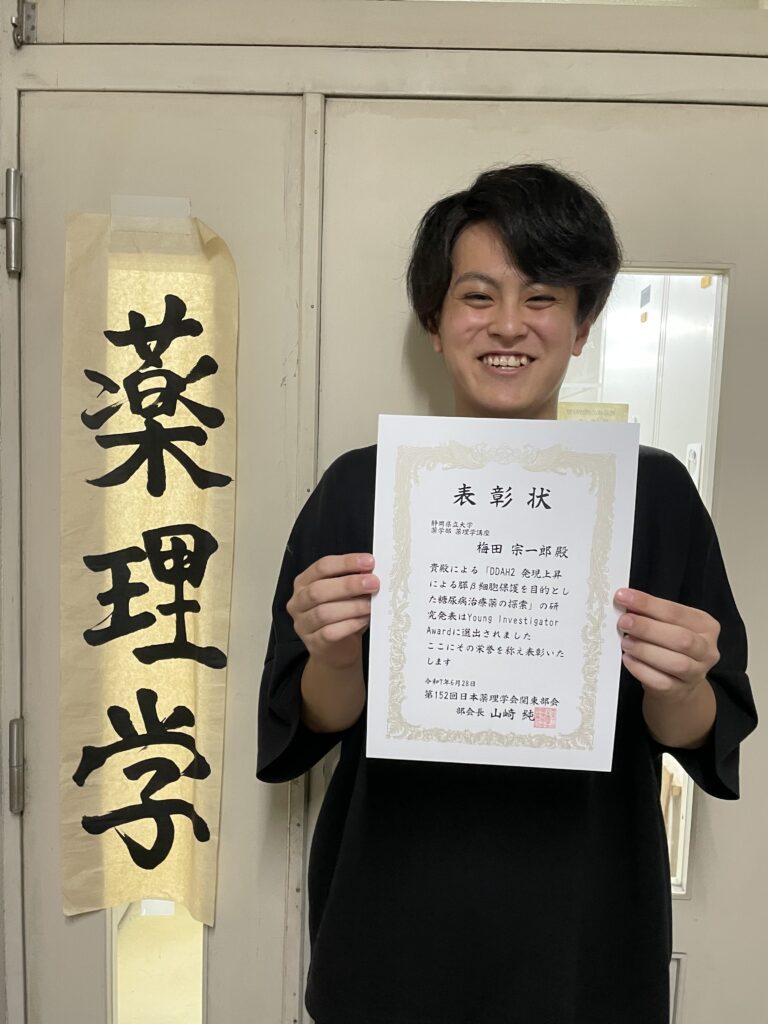 薬理学
表彰状
静岡県立大学
薬学部 薬理学講座
梅田 宗一郎 殿
貴殿による「DDAH2 発現上昇
による膵β細胞保護を目的とし
た糖尿病治療薬の探索」の研
究発表はYoung Investigator
Awardに選出されました
ここにその栄誉を称え表彰いた
します
令和7年6月28日
第152回日本薬理学会関東部会
部会長 山崎 純